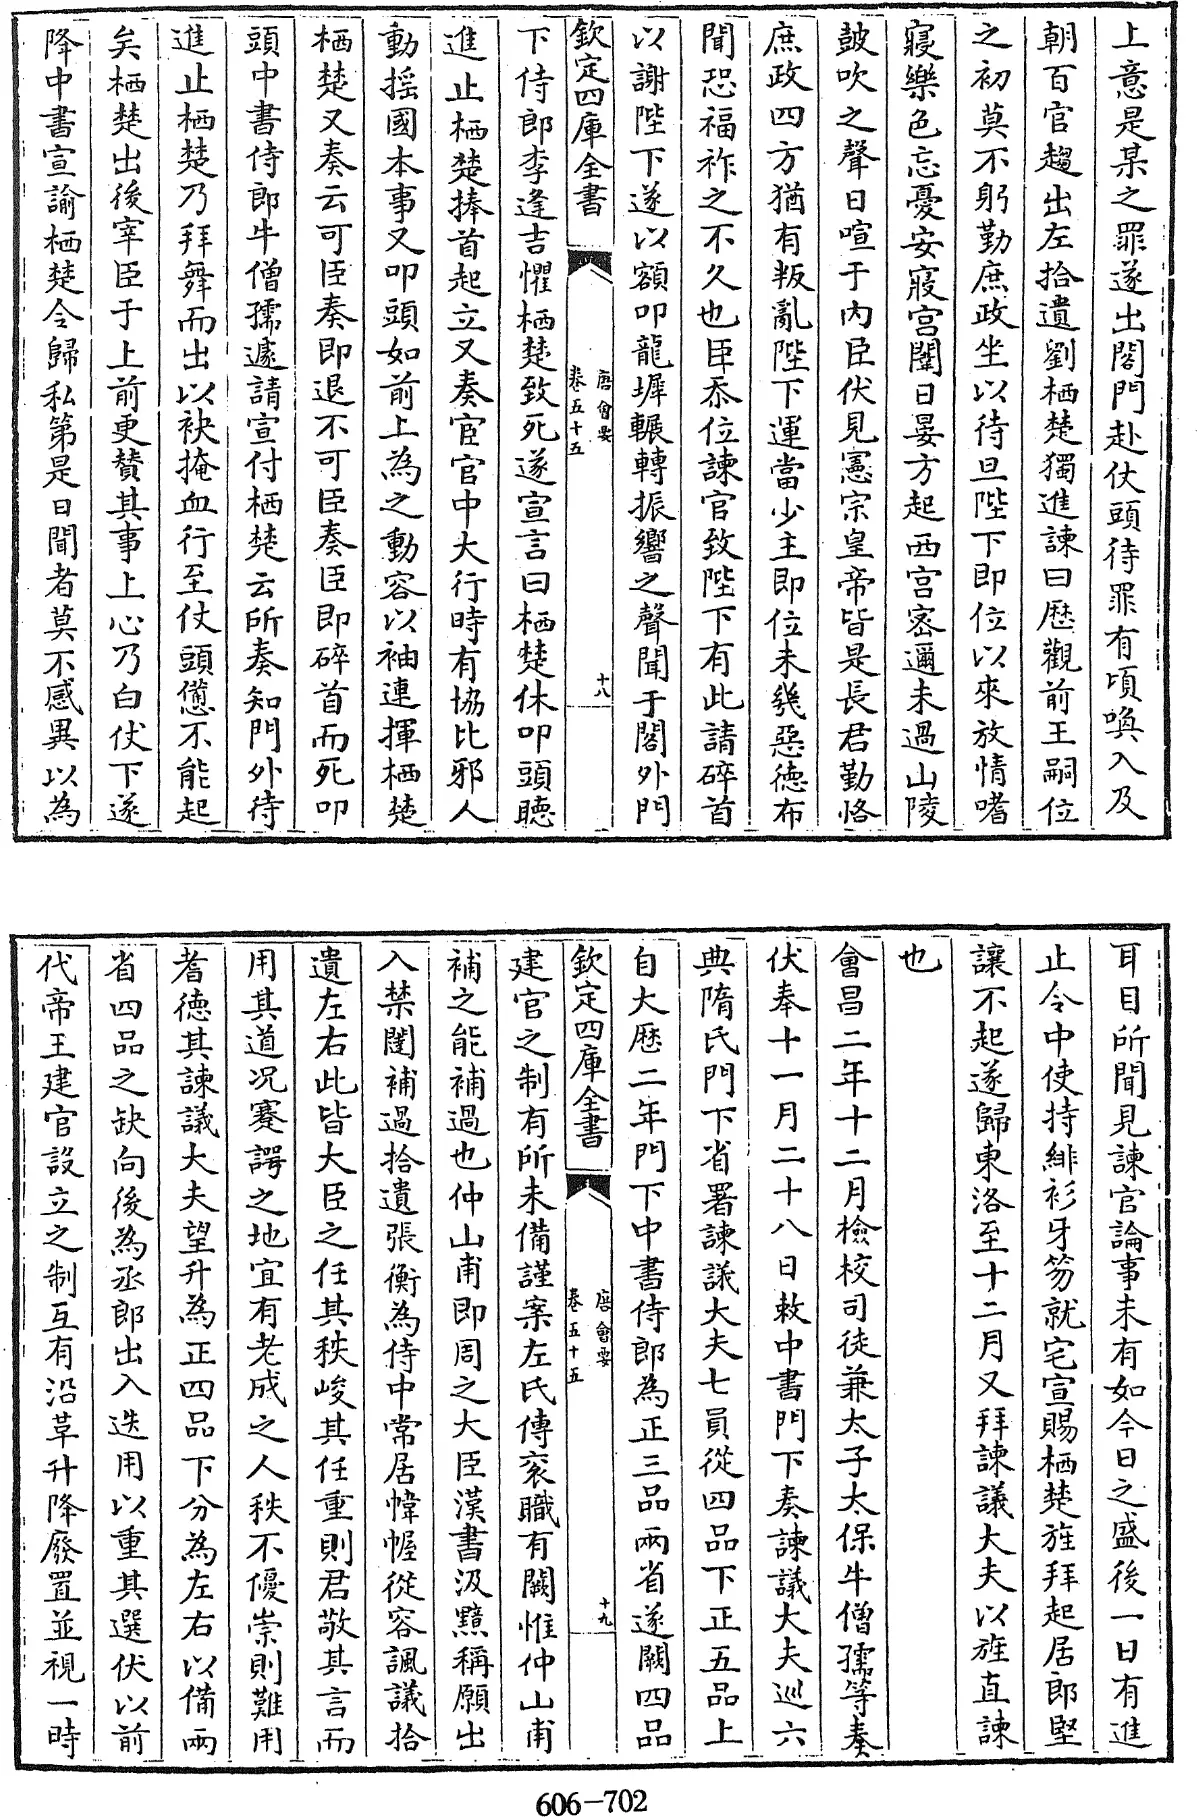 上意是某之罪遂出閤門赴仗頭待罪有頃喚入及
朝百官趨出左拾遺劉栖楚獨進諫曰歴觀前王嗣位
之初莫不躬勤庶政坐以待旦陛下即位以來放情嗜
寢樂色忘憂安寢宫闈日晏方起西宫密邇未過山陵
鼓吹之聲日喧于内臣伏見憲宗皇帝皆是長君勤恪
庶政四方猶有叛亂陛下運當少主即位未幾惡德布
聞恐福祚之不久也臣忝位諫官致陛下有此請碎首
以謝陛下遂以額叩龍墀輾轉振響之聲聞于閤外門
欽定四庫全書
唐會要
卷五十五
十八
下侍郎李逢吉懼栖楚致死遂宣言曰栖楚休叩頭聽
進止栖楚捧首起立又奏宦官中大行時有協比邪人
動揺國本事又叩頭如前上為之動容以袖連揮栖楚
栖楚又奏云可臣奏即退不可臣奏臣即碎首而死叩
頭中書侍郎牛僧孺遽請宣付栖楚云所奏知門外待
進止栖楚乃拜舞而出以袂掩血行至仗頭憊不能起
矣栖楚出後宰臣于上前更賛其事上心乃白伏下遂
降中書宣諭栖楚令歸私第是日聞者莫不感異以為
耳目所聞見諫官論事未有如今日之盛後一日有進
止令中使持緋衫牙笏就宅宣賜栖楚旌拜起居郎堅
讓不起遂歸東洛至十二月又拜諫議大夫以旌直諫
也
會昌二年十二月檢校司徒兼太子太保牛僧孺等奏
伏奉十一月二十八日敕中書門下奏諫議大夫巡六
典隋氏門下省署諫議大夫七員從四品下正五品上
自大歴二年門下中書侍郎為正三品兩省遂闕四品
欽定四庫全書
唐會要
卷五十五
十九
建官之制有所未備謹案左氏傳衮職有闕惟仲山甫
補之能補過也仲山甫即周之大臣漢書汲黯稱願出
入禁闥補過拾遺張衡為侍中常居幃幄從容諷議拾
遺左右此皆大臣之任其秩峻其任重則君敬其言而
用其道况蹇諤之地宜有老成之人秩不優崇則難用
耆德其諫議大夫望升為正四品下分為左右以備兩
省四品之缺向後為丞郎出入迭用以重其選伏以前
代帝王建官設立之制互有沿革升降廢置並視一時
606-702